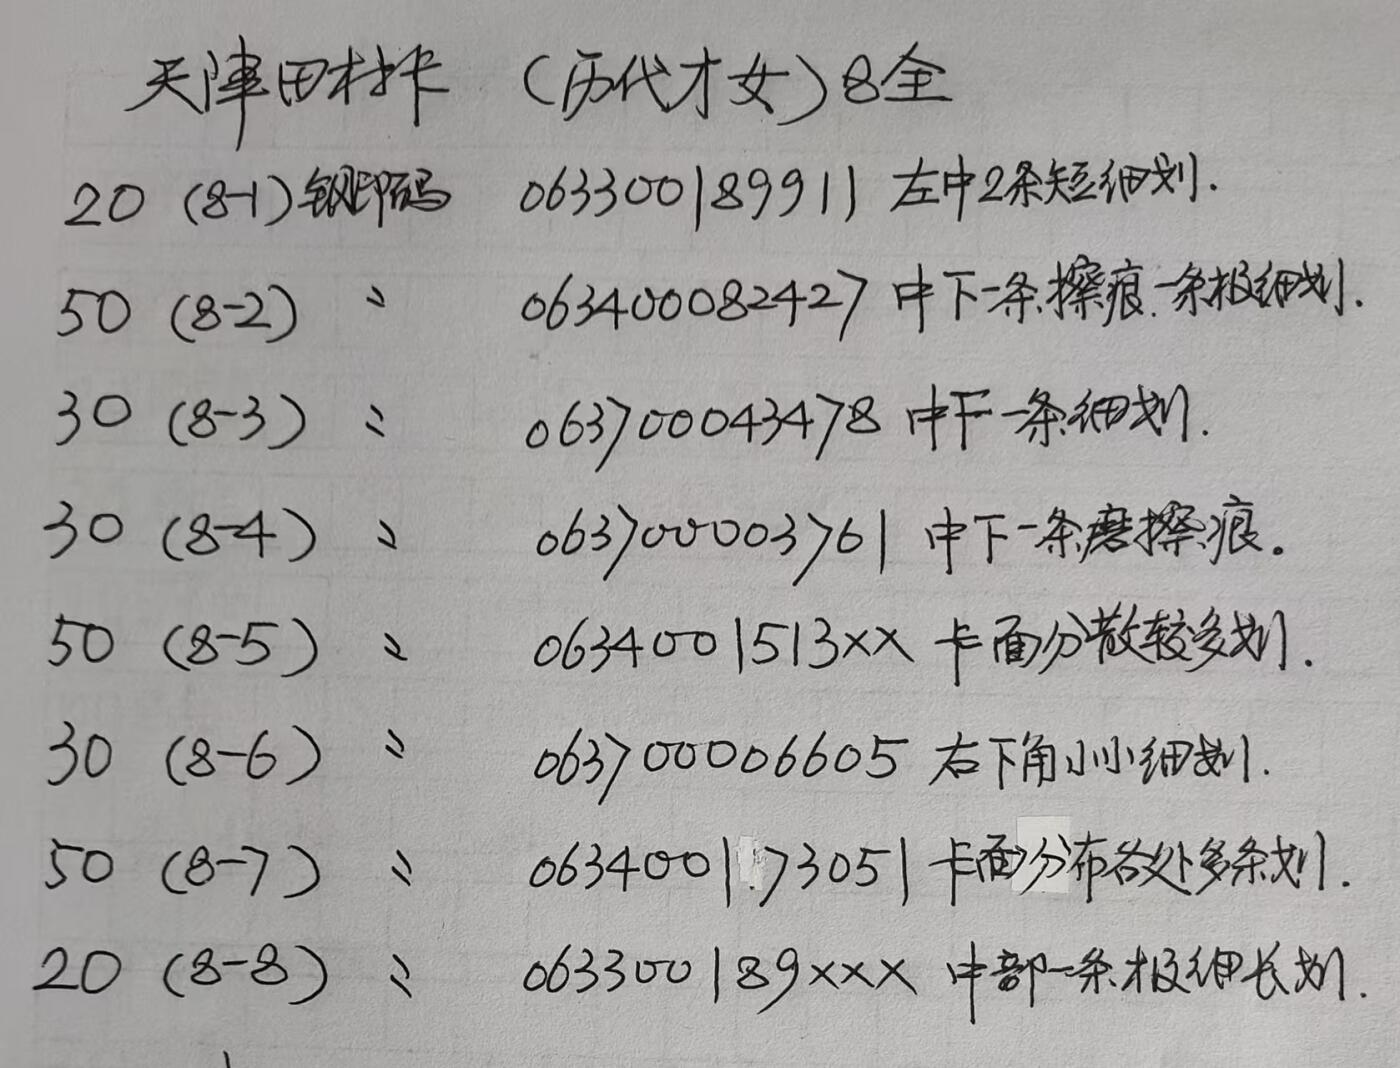 天津田村卡 (历代才女) 8全
20 (8-1) 钢印码 063300189911 左中2条短细划.
50 (8-2) 〃 063400082427 中下一条擦痕.一条极细划.
30 (8-3) 〃 063700043478 中下一条细划.
30 (8-4) 〃 063700003761 中下一条磨擦痕。
50 (8-5) 〃 0634001513×× 卡面分散较多划.
30 (8-6) 〃 063700006605 右下角小小细划.
50 (8-7) 〃 063400173051 卡面分布各处多条划.
20 (8-8) 〃 063300189××× 中部一条极细长划.